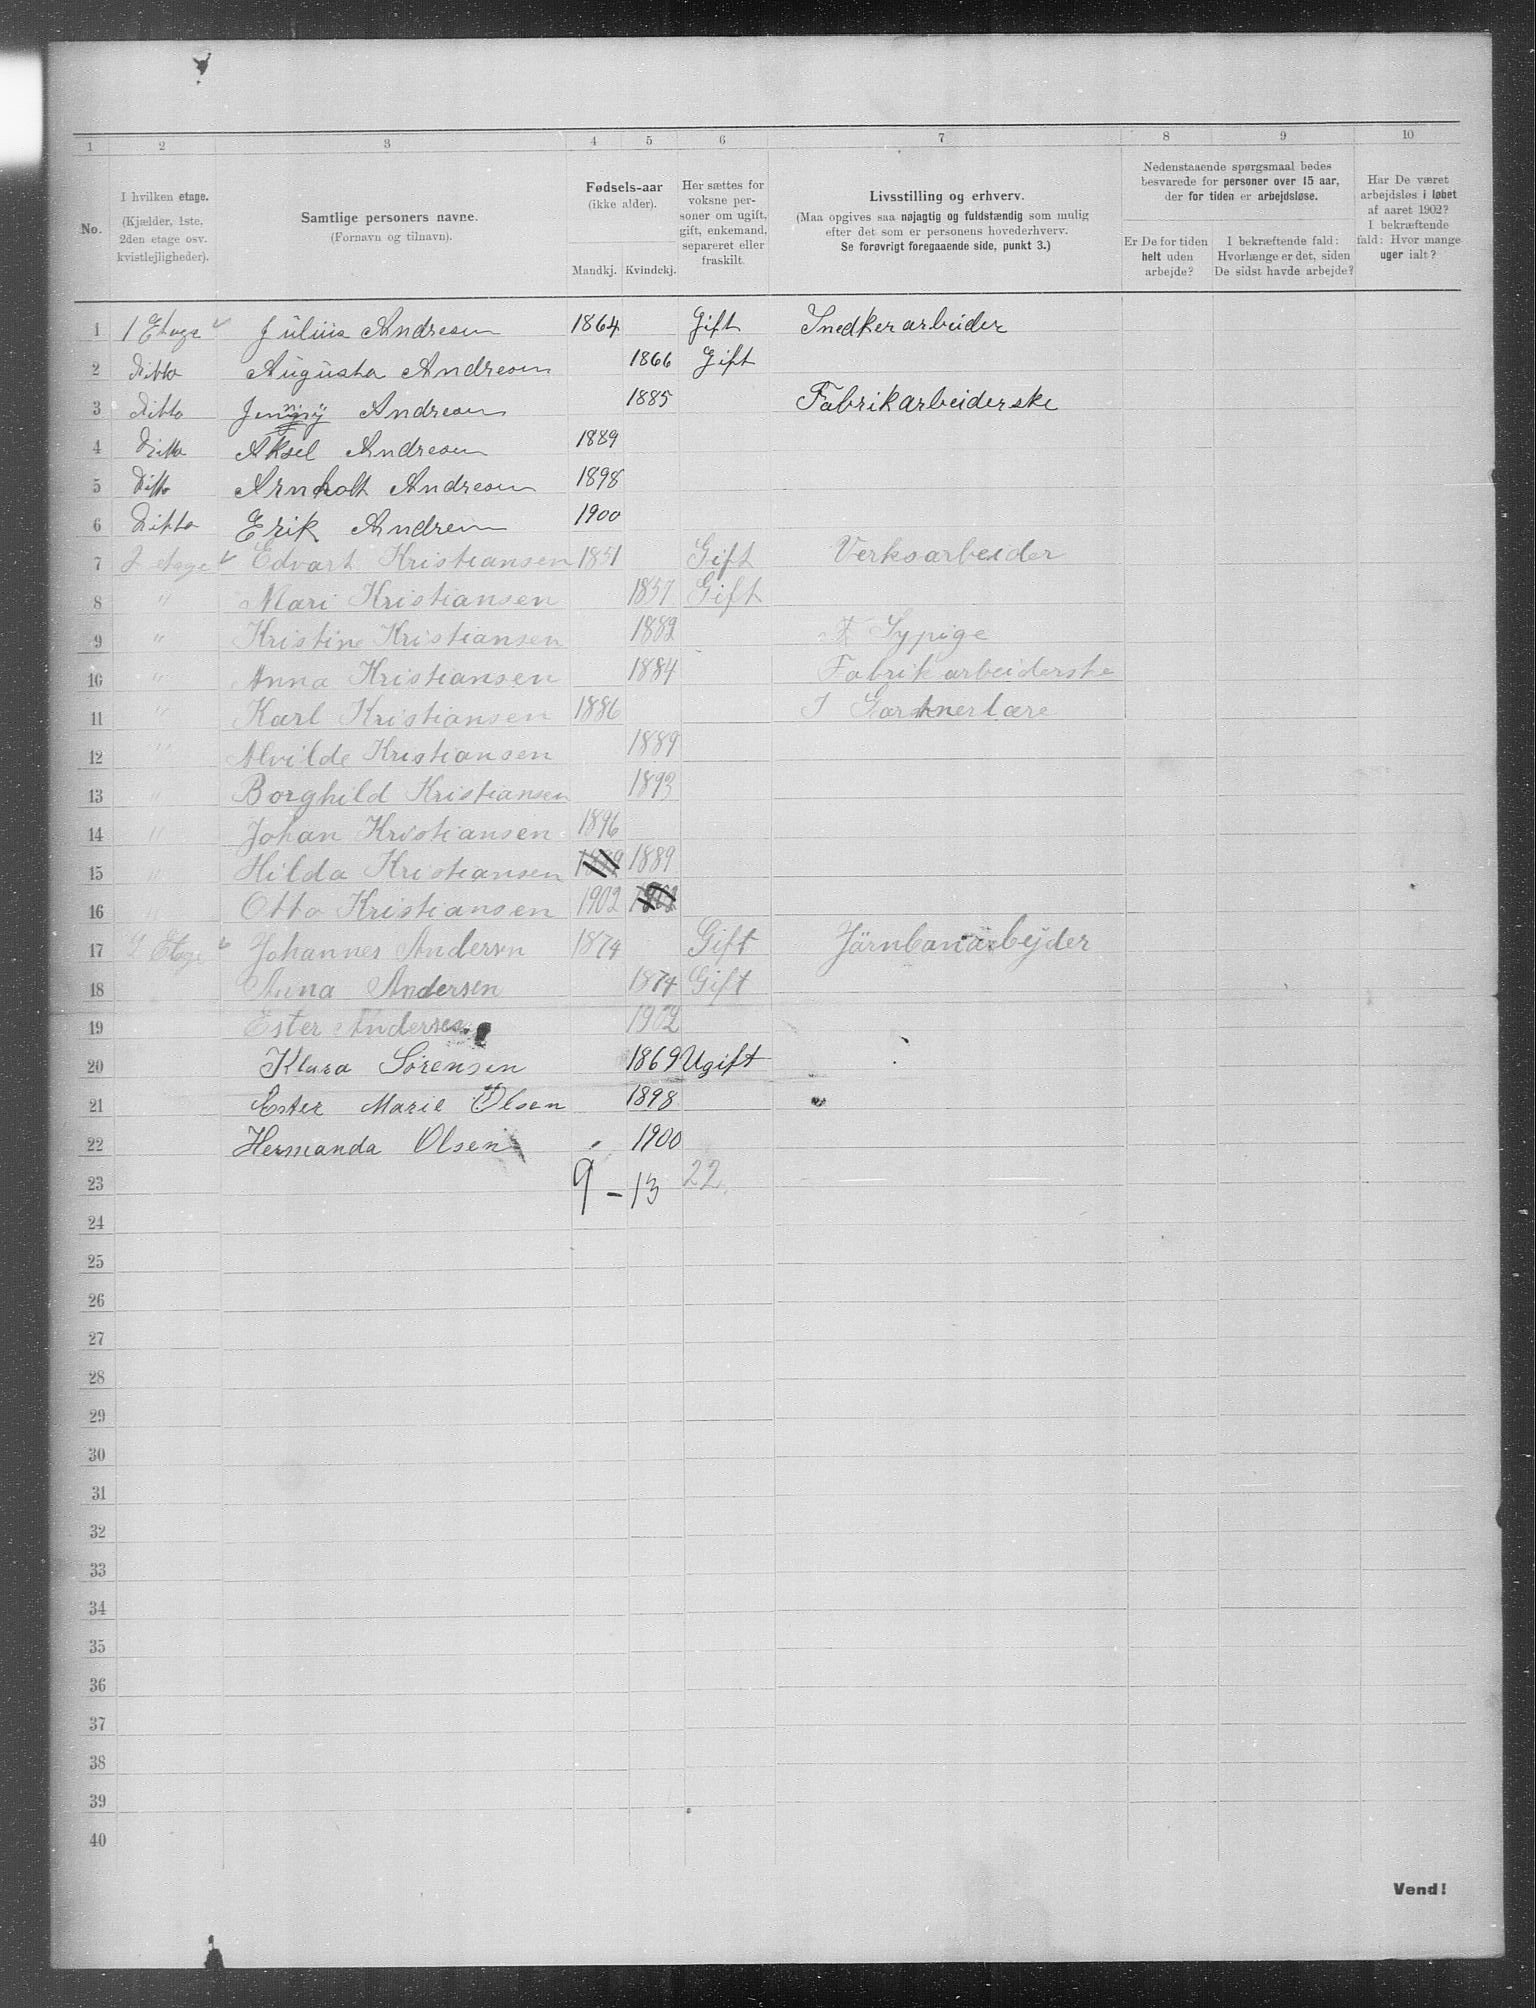 1 2 3 4 5 6 7 8 9 10
No.
I hvilken etage.
(Kjælder, 1ste,
2den etage osv.
kvistlejligheder).
Samtlige personers navne.
(Fornavn og tilnavn).
Fødsels-aar
(ikke alder).
Mandkj. Kvindekj.
Her sættes for
voksne per-
soner om ugift,
gift, enkemand,
separeret eller
fraskilt.
Livsstilling og erhverv.
(Maa opgives saa nøjagtig og fuldstændig som mulig
efter det som er personens hovederhverv.
Se forøvrigt foregaaende side, punkt 3.)
Nedenstaaende spørgsmaal bedes
besvarede for personer over 15 aar,
der for tiden er arbejdsløse.
Er De for tiden
helt uden
arbejde?
I bekræftende fald:
Hvorlænge er det, siden
De sidst havde arbejde?
Har De været
arbejdsløs i løbet
af aaret 1902?
I bekræftende
fald: Hvor mange
uger ialt?
1 1 Etage Julius Andresen 1864 Gift Snedkerarbeider
2 Ditto Augusta Andresen 1866 Gift
3 Ditto Jenny Andresen 1885 Fabrikarbeiderske
4 Ditto Aksel Andresen 1889
5 Ditto Arnholt Andresen 1898
6 Ditto Erik Andresen 1900
7 2 etage Edvart Kristiansen 1851 Gift Verksarbeider
8 " Mari Kristiansen 1857 Gift
9 " Kristine Kristiansen 1882 Sypige
10 " Anna Kristiansen 1884 Fabrikarbeiderske
11 " Karl Kristiansen 1886 I Gartnerlære
12 " Alvilde Kristiansen 1889
13 " Borghild Kristiansen 1893
14 " Johan Kristiansen 1896
15 " Hilda Kristiansen 1889
16 " Otto Kristiansen 1902
17 2 Etage Johannes Andersen 1874 Gift Järnbanarbejder
18 Anna Andersen 1874 Gift
19 Ester Andersen 1902
20 Klara Sørensen 1869 Ugift
21 Ester Marie Olsen 1898
22 Hermanda Olsen 1900
23 9 - 13 22
24
25
26
27
28
29
30
31
32
33
34
35
36
37
38
39
40
Vend!